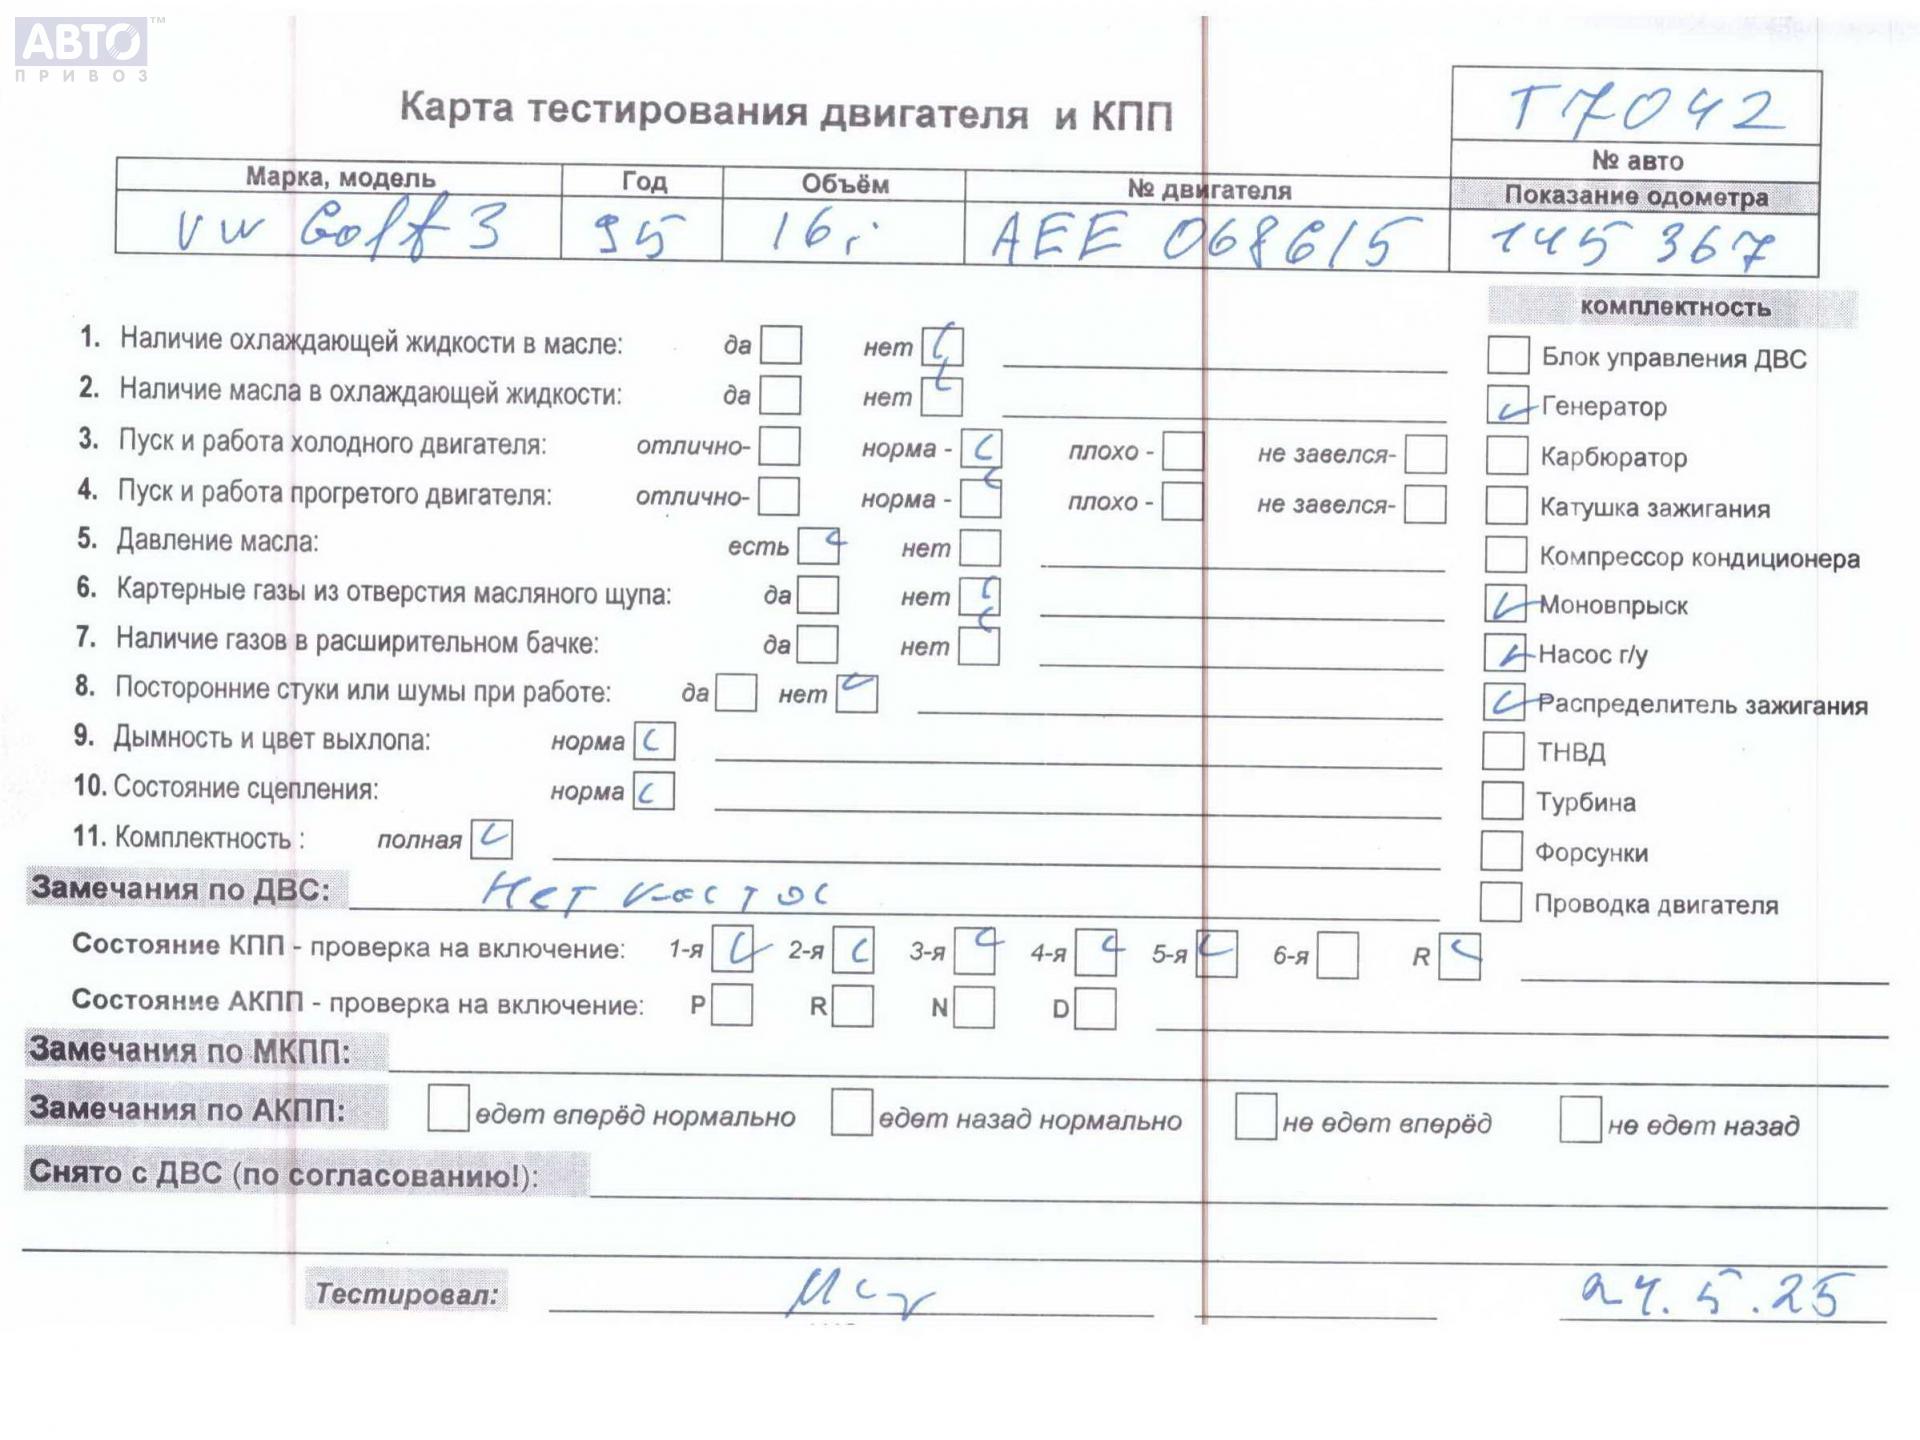 АВТО™
ПРИВОЗ
Карта тестирования двигателя и КПП
Т7042
№ авто
Марка, модель Год Объём № двигателя Показание одометра
VW Golf 3 95 16i AEE 068615 145 367
комплектность
1. Наличие охлаждающей жидкости в масле: да нет
Блок управления ДВС
2. Наличие масла в охлаждающей жидкости: да нет
Генератор
3. Пуск и работа холодного двигателя: отлично- норма - плохо - не завелся-
Карбюратор
4. Пуск и работа прогретого двигателя: отлично- норма - плохо - не завелся-
Катушка зажигания
5. Давление масла: есть нет
Компрессор кондиционера
6. Картерные газы из отверстия масляного щупа: да нет
Моновпрыск
7. Наличие газов в расширительном бачке: да нет
Насос г/у
8. Посторонние стуки или шумы при работе: да нет
Распределитель зажигания
9. Дымность и цвет выхлопа: норма
ТНВД
10. Состояние сцепления: норма
Турбина
11. Комплектность : полная
Форсунки
Замечания по ДВС: Нет
Проводка двигателя
Состояние КПП - проверка на включение: 1-я 2-я 3-я 4-я 5-я 6-я R
Состояние АКПП - проверка на включение: P R N D
Замечания по МКПП:
Замечания по АКПП: едет вперёд нормально едет назад нормально не едет вперёд не едет назад
Снято с ДВС (по согласованию!):
Тестировал: 24.5.25